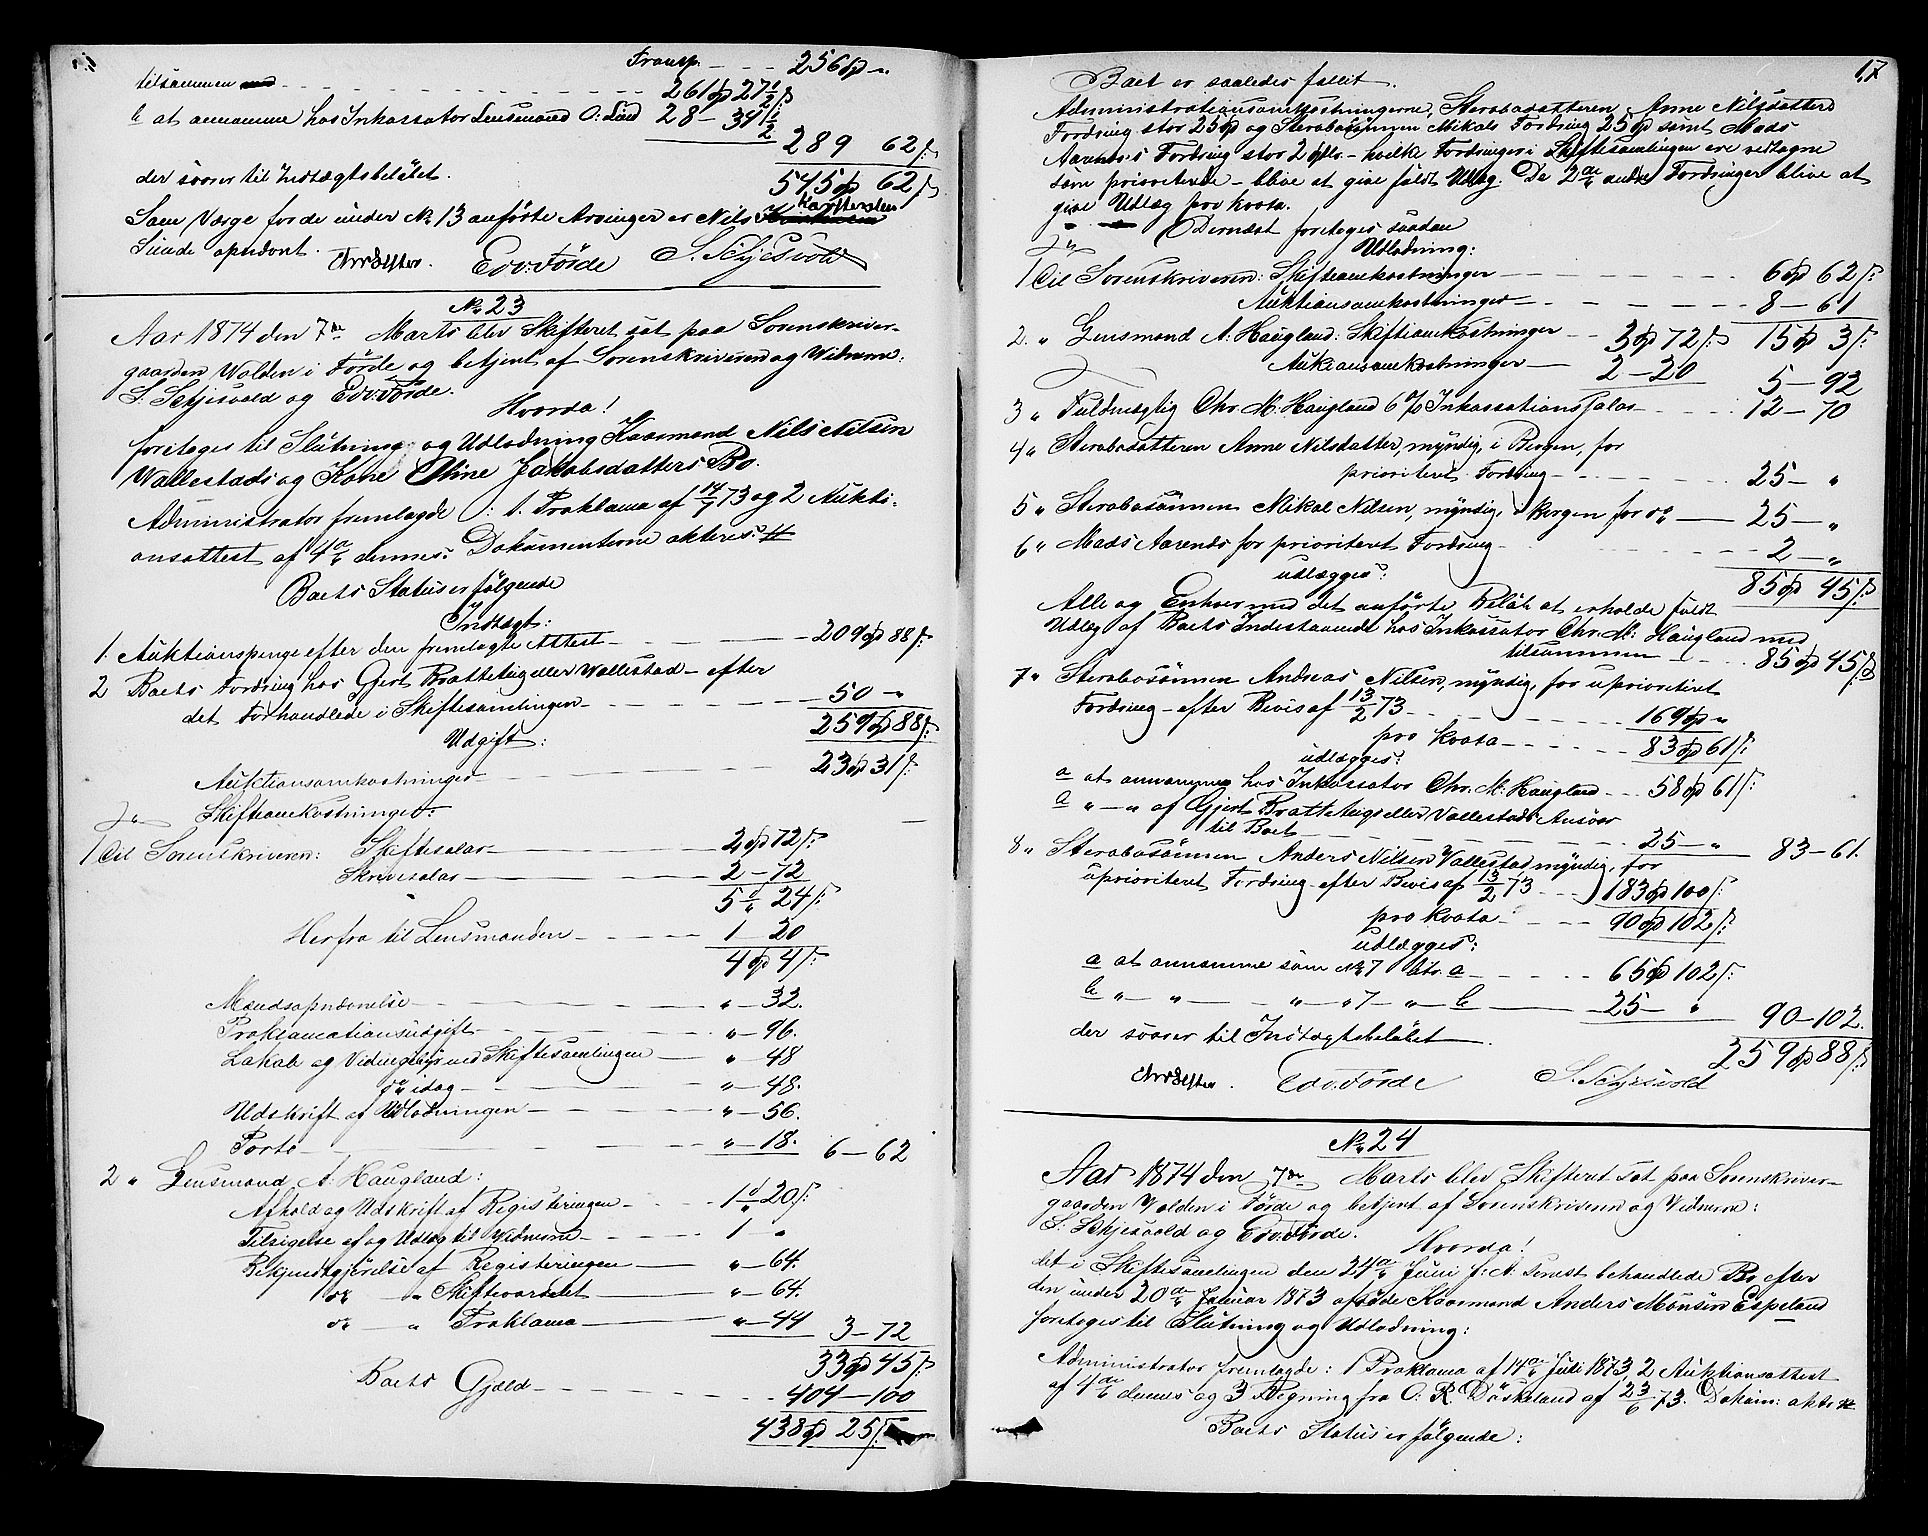 Transp. - - - 256 „
tilsammen - - - 261 27½ s
b at annamme hos Inkassator Lensmand O: Lind 28 - 34½
289 62 s:
der svarer til Indtægtsbeløbet. 545 62 s
Som Værge for de under No 13 anførte Arvinger er Nils Karstensen
Sunde opnævnt.
Edv: Förde S. Schjesvold
No 23
Aar 1874 den 7de Marts blev Skifteret sat paa Sorenskriver-
gaarden Walden i Förde og betjent af Sorenskriveren og Vidnerne:
S. Schjesvold og Edv: Förde.
Hvorda!
foretoges til Slutning og Udlodning Kaarmand Nils Nilsen
Wallestads og Kone Oline Jakobsdatters Bo.
Administrator fremlagde: 1. Proklama af 14/7 73 og 2 Aukti-
onsattest af 4de dennes. Dokumenterne akteres.
Boets Status er følgende
Indtægt:
1. Auktionspenge efter den fremlagte Attest - - - 209 88 s:
2 Boets Fordring hos Gjert Bratteteig eller Wallestad - efter
det Forhandlede i Skiftesamlingen - - - 50 - „
259 88 s:
Udgift:
Auktionsomkostninger - - - 23 31 s:
Skifteomkostninger:
1 Til Sorenskriveren: Skiftesalær - - - 2 72 s:
Skriversalær - - - 2 - 72
5 24 s:
Herfra til Lensmanden - - - 1 20
4 4 s:
Mandsopnævnelse - - - „ - 32.
Proklamationsudgift - - - „ - 96.
Lokale og Vidnegebyr ved Skiftesamlingen - „ - 48
do idag - - - „ - 48.
Udskrift af Udlodningen - - - „ - 56.
Porto - - - „ - 18. 6 - 62
2 „ Lensmand A: Haugland:
Afhold og Udskrift af Registeringen - - - 1 20 s:
Tilsigelse af og Udlæg til Vidnerne - - - 1 „
Bekjendtgjørelse af Registeringen - - - „ - 64.
do - „ Skiftevarselet - - - „ - 64.
do - „ Proklama - - - „ - 44 3 - 72
33 45 s:
Boets Gjæld - - - 404 - 100
438 25 s:
17
Boet er saaledes fallit.
Administrationsomkostningerne, Sterbodatteren Anne Nilsdatters
Fordring stor 25 og Sterbosønnen Mikals Fordring 25 samt Mads
Aarends Fordring stor 2 - hvilke Fordringer i Skiftesamlingen ere vedtagne
som prioriterede - blive at give fuldt Udlæg. De 2de andre Fordringer blive at
give Udlæg pro kvota.
Dernæst foretoges saadan
Udlodning:
1 Til Sorenskriveren: Skifteomkostninger - - - 6 62 s:
Auktionsomkostninger - - - 8 - 61
2. „ Lensmand A: Haugland: Skifteomkostninger - - 3 72 s: 15 3 s:
Auktionsomkostninger - 2 - 20 5 - 92
3 „ Fuldmægtig Chr. M: Haugland 6 % Inkassationssalær - - - 12 - 70
4 „ Sterbodatteren Anne Nilsdatter, myndig, i Bergen, for
prioriteret Fordring - - - 25 - „
5 „ Sterbosønnen Mikal Nilsen, myndig, i Bergen for do - 25 - „
6 „ Mads Aarends for prioriteret Fordring - - - 2 - „
udlægges: 85 45 s:
Alle og Enhver med det anførte Beløb at erholde fuldt
Udlæg af Boets Indestaaende hos Inkassator Chr. M: Haugland med
tilsammen - - - 85 45 s
7 „ Sterbosønnen Andreas Nilsen, myndig, for uprioriteret
Fordring - efter Bevis af 13/2 73 - - - 169 „
pro kvota - - - 83 61 s:
udlægges:
a at annamme hos Inkassator Chr. M: Haugland - - 58 61 s:
a „ - „ af Gjert Bratteteigs eller Vallestads Ansvar
til Boet - - - 25 - „ 83 - 61.
8 „ Sterbosønnen Anders Nilsen Vallestad, myndig, for
uprioriteret Fordring - efter Bevis af 13/2 73 - - - 183 100 s:
pro kvota - - - 90 102 s:
udlægges:
a at annamme som No 7 litr. a - - - 65 102 s:
b „ - „ - „ - „ 7 - „ - b - 25 - „ 90 - 102.
der svarer til Indtægtsbeløbet - 259 88 s:
Edv. Förde S. Schjesvold
No 24
Aar 1874 den 7de Marts blev Skifteret sat paa Sorenskriver-
gaarden Walden i Förde og betjent af Sorenskriveren og Vidnerne:
S. Schjesvold og Edv: Förde.
Hvorda!
det i Skiftesamlingen den 24de Juni f: A: senest behandlede Bo efter
den under 20de Januar 1873 afdøde Kaarmand Anders Mönsen Espeland
foretoges til Slutning og Udlodning:
Administrator fremlagde: 1 Proklama af 14de Juli 1873, 2 Auktionsattest
af 4de dennes og 3 Regning fra O: R. Döskeland af 23/6 73. Dokum: akt:
Boets Status er følgende: